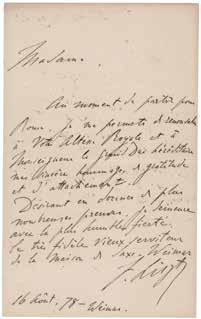 Madame.
Au moment de partir pour
Rome, je me permets de
à Votre Altesse Royale et à
Monseigneur le Grand Duc héréditaire
mes hommages, de gratitude
et d'attachement.
Désirant en donner de plus
nombreuses preuves, je demeure
avec la plus humble fierté
le très fidèle vieux serviteur
de la Maison de Saxe-Weimar
F. Liszt
16 Août, 78 - Weimar.